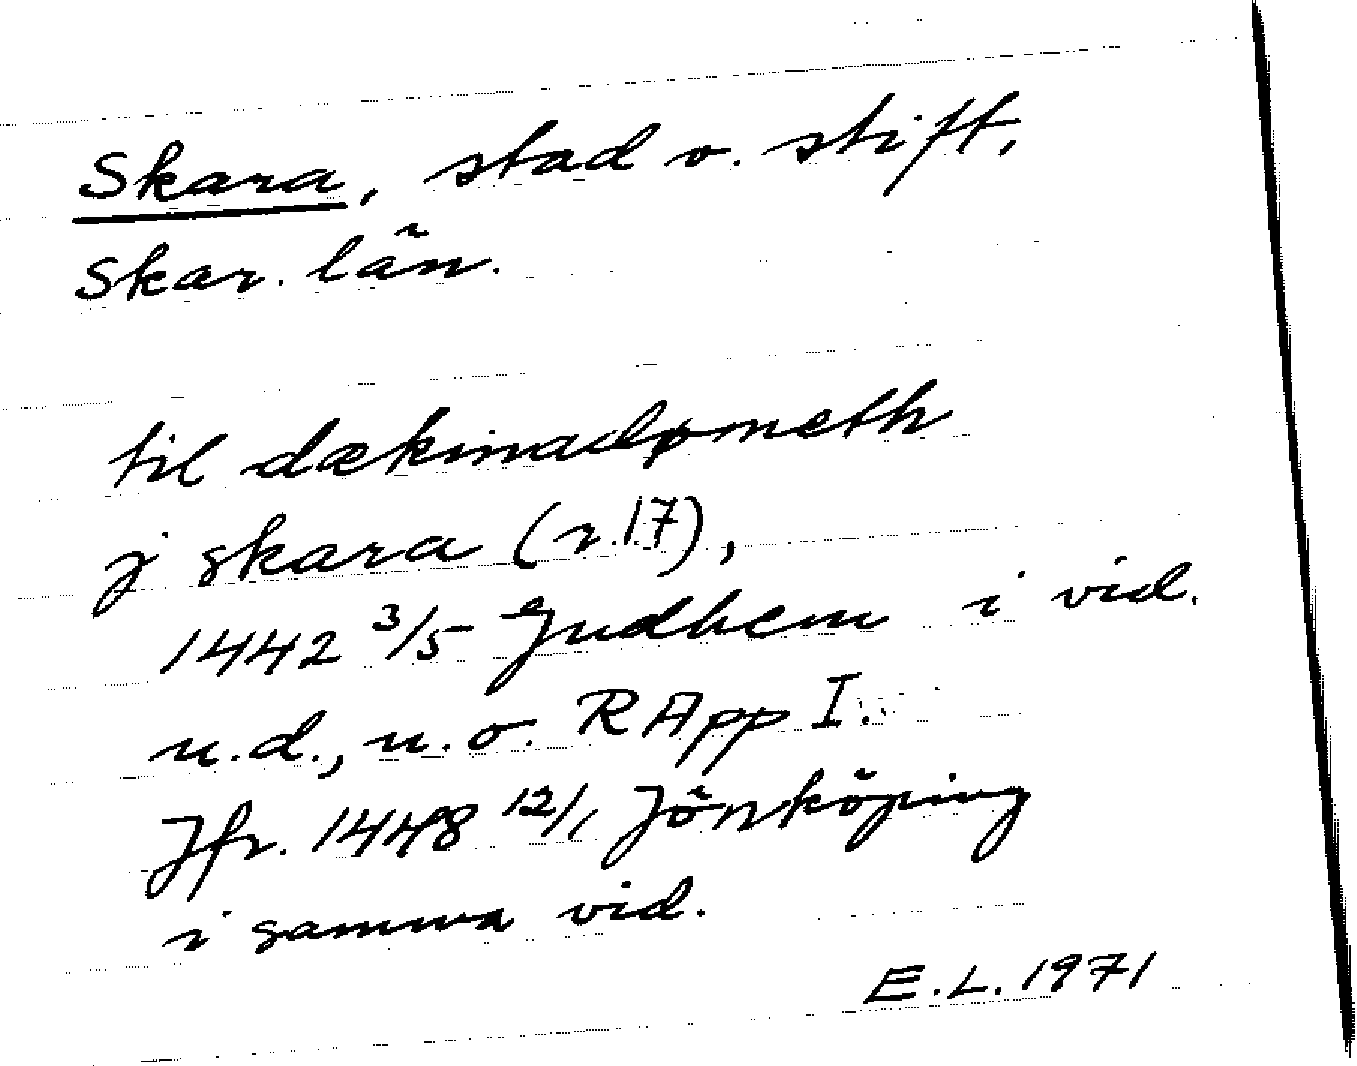 Skara, stad o. stift,
Skar. län.
til dækinadømeth
j skara (r.17),
1442 3/5 Gudhem i vid.
u.d., u.o. RApp I.
Jfr. 1448 12/1 Jönköping
i samma vid.
E.L. 1971